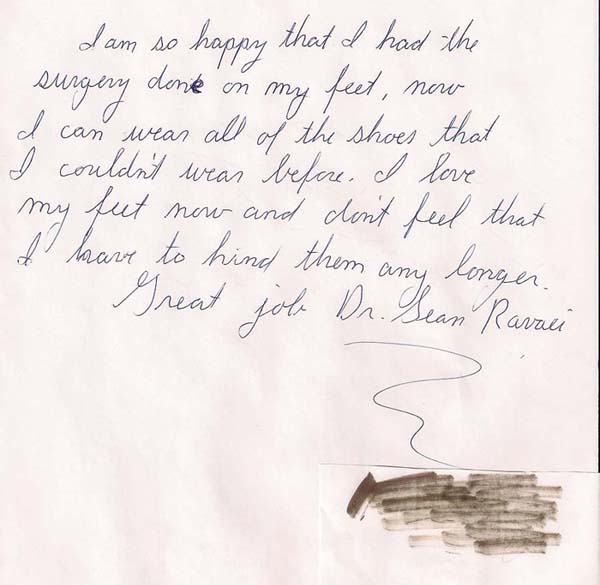 I am so happy that I had the
surgery done on my feet, now
I can wear all of the shoes that
I couldn't wear before. I love
my feet now and don't feel that
I have to hind them any longer.
Great job Dr. Sean Ravaei